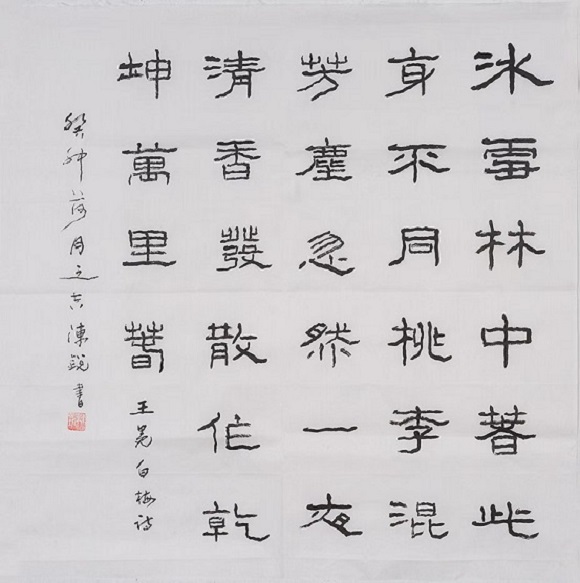 冰雪林中著此
身不同桃李混
芳塵忽然一夜
清香發散作乾
坤萬里春 王冕白梅诗
癸月之吉陳銳書